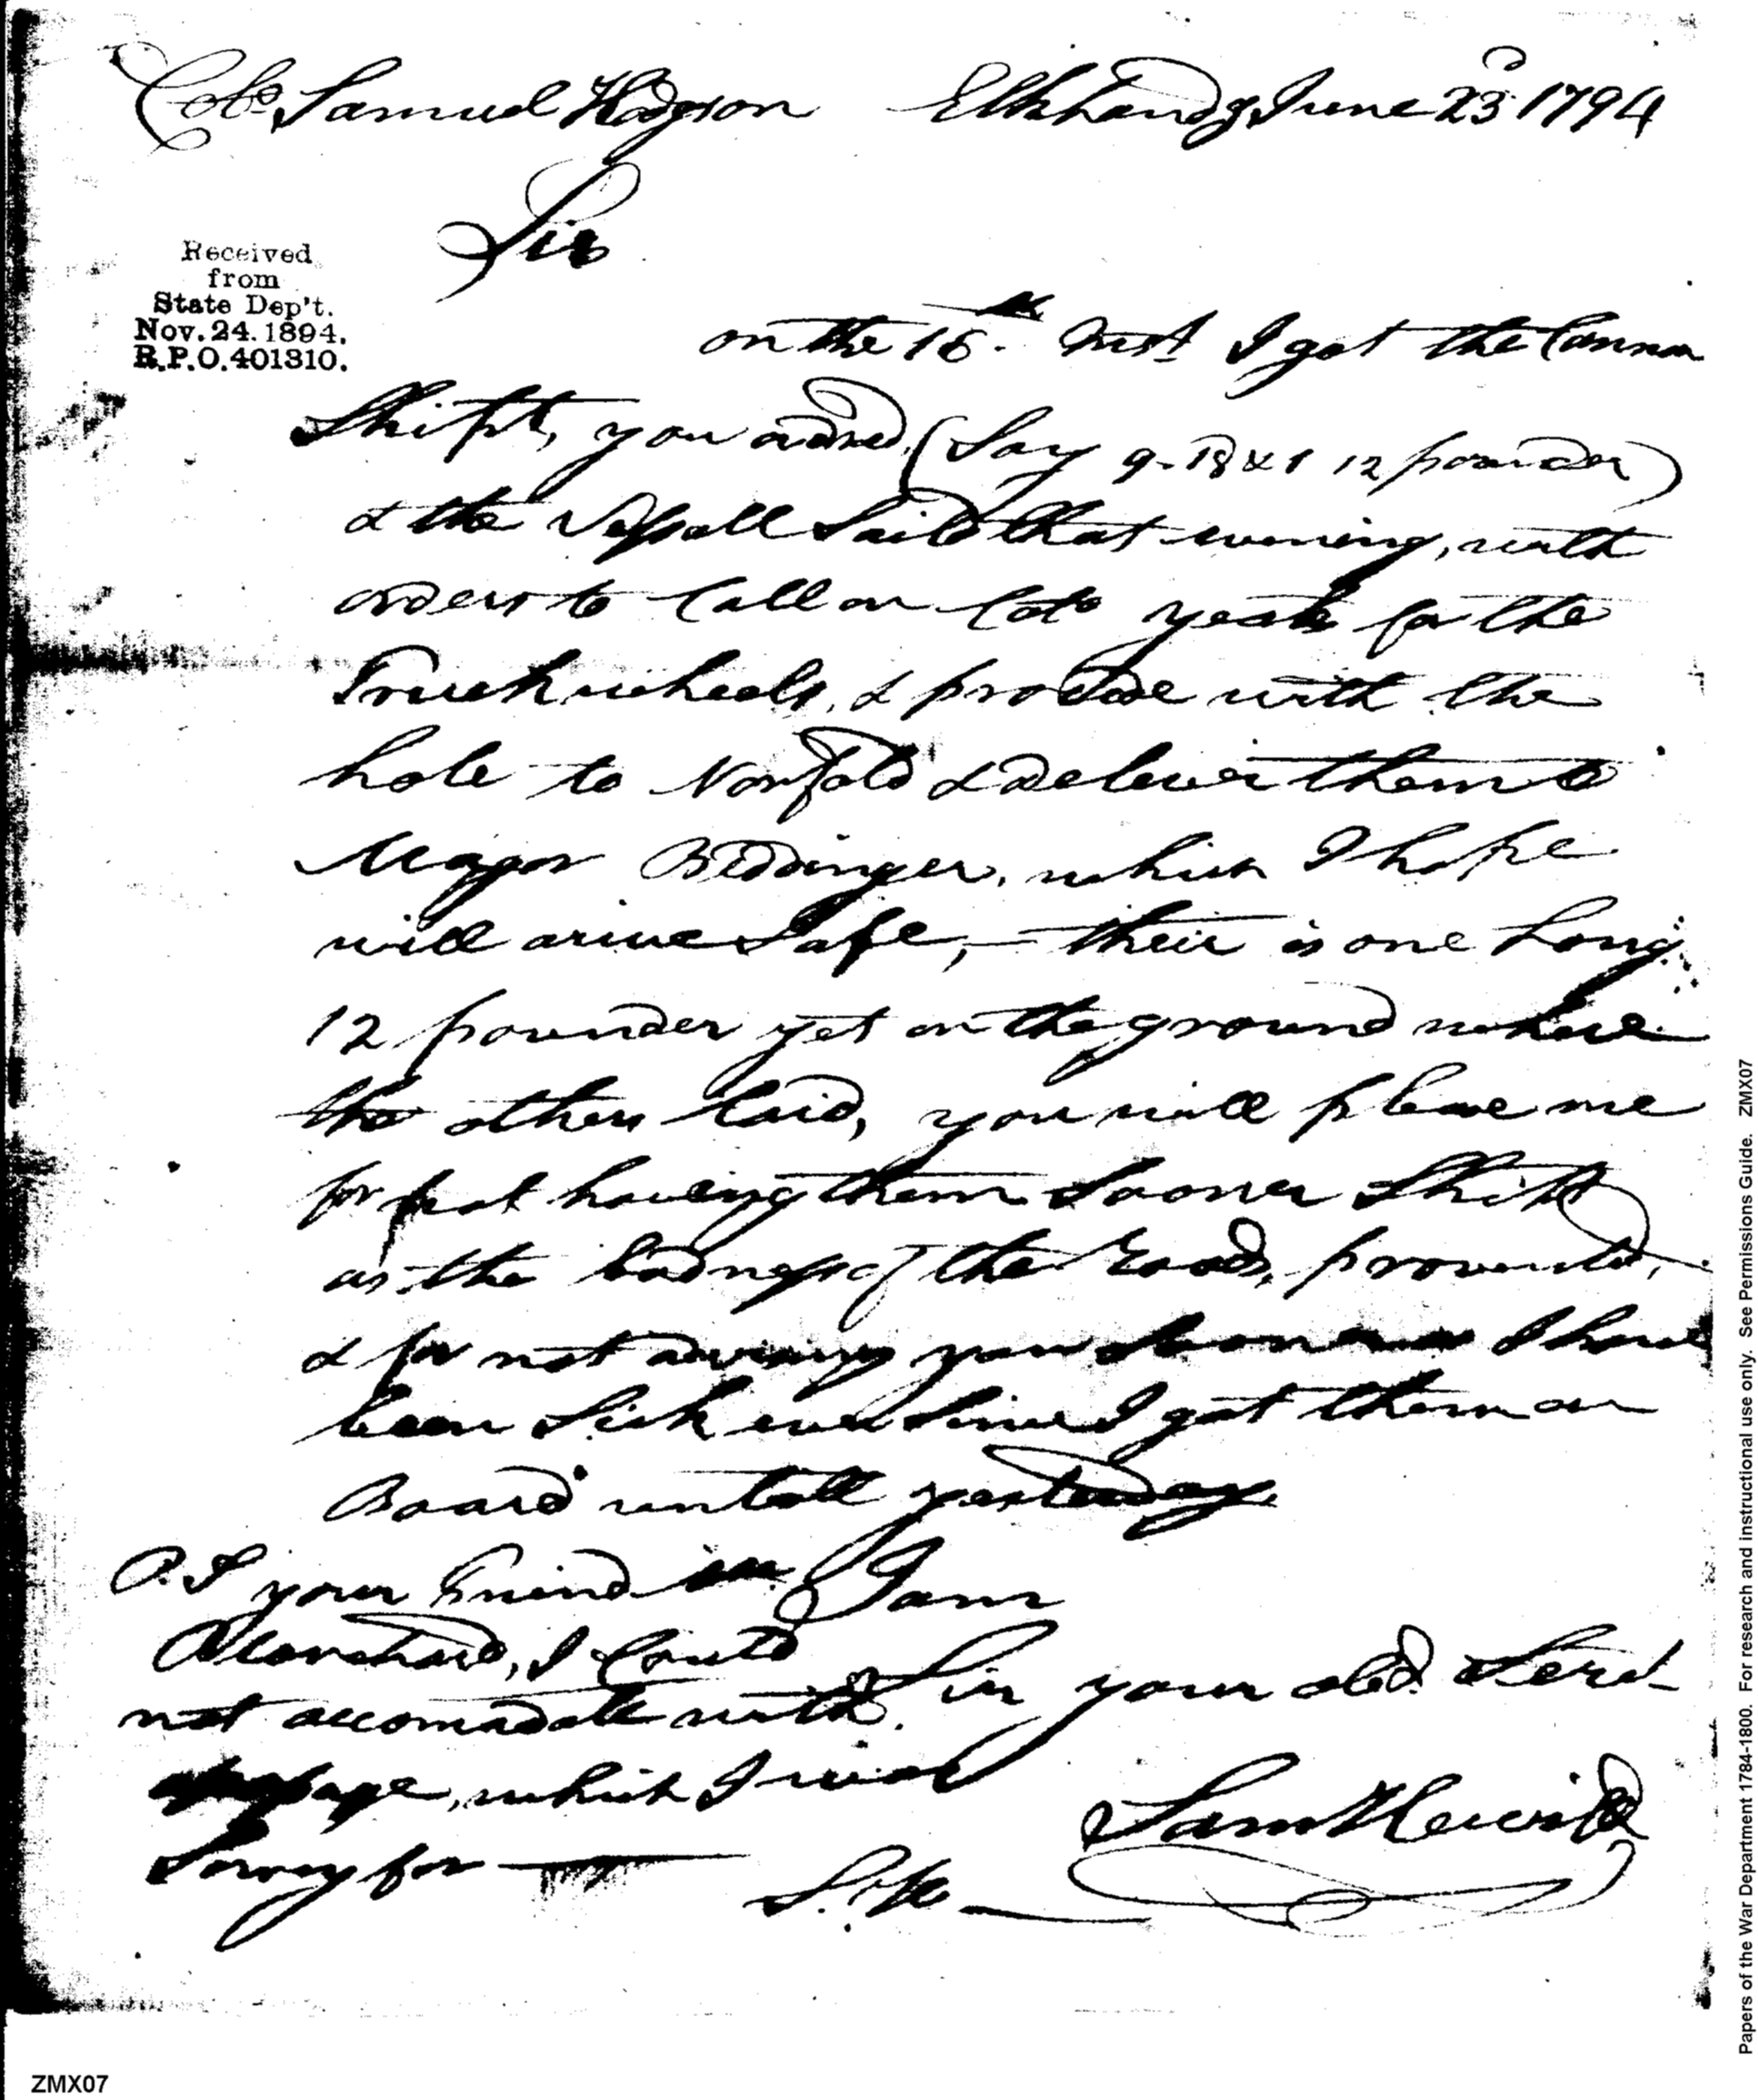 Colo. Samuel Hodgson Elk Landg June 23d 1794
Sir
Received
from
State Dep't.
Nov. 24. 1894.
R.P.O. 401310.
on the 16th. Inst I got the Cannon
Shipt, you ordred (Say 9-18 & 1 12 pounder)
& the Vessall Saild that evening, with
orders to Call on Colo yeats for the
Truck wheels, & procede with the
hole to Norfold & deliver them to
Major Beddinger, which I hope
will arive Safe, – their is one Long
12 pounder yet on the ground where
the others laid, you will please me
for not haveing them Sooner Shipt
as the badness of the Roads, prevented,
& for not advising you Sooner I have
been Sick ever Since I got them on
Board untill yesterday.
P.S your Friend Mr. I am
Blanchard, I Could
not accomadate with Sir your obd. Servt
passage, which I was
Sorry for — Sam Hewitt
S. H —
Papers of the War Department 1784-1800. For research and instructional use only. See Permissions Guide. ZMX07
ZMX07